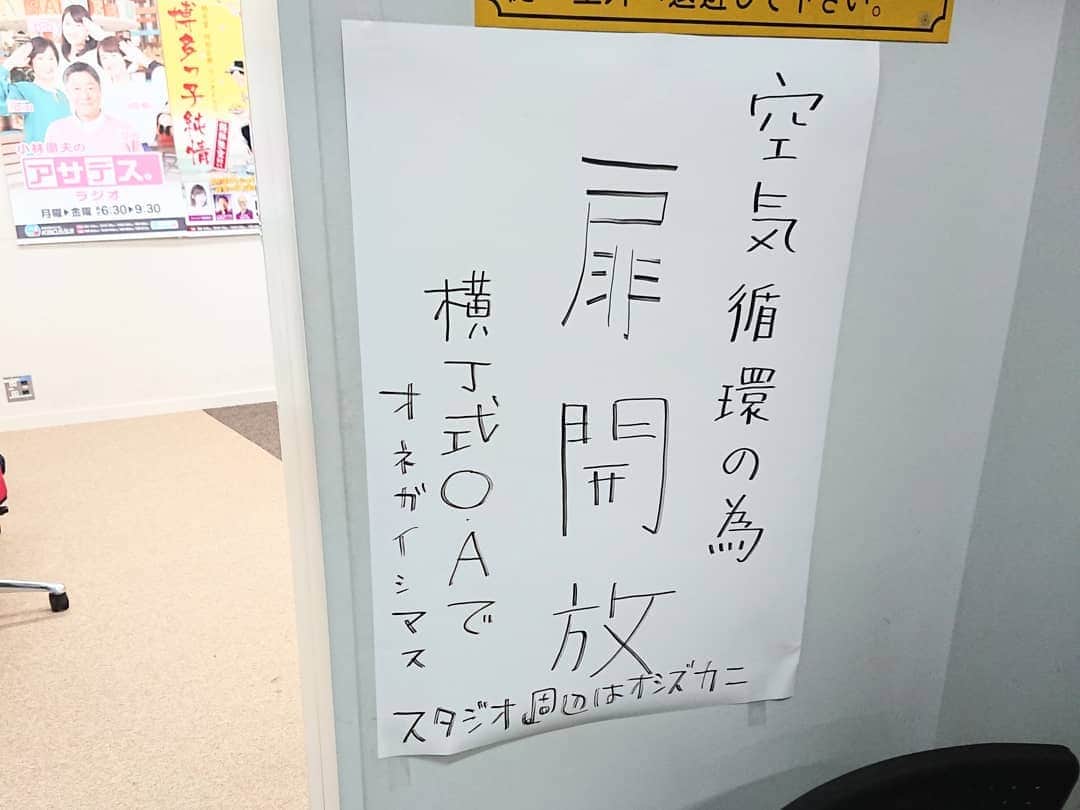 空気循環の為
扉開放
横丁式O.Aで
オネガイシマス
スタジオ周辺はオシズカニ
博多っ子純情
小林徹夫の
アサデス。
ラジオ
月曜▶金曜 6:30▶9:30